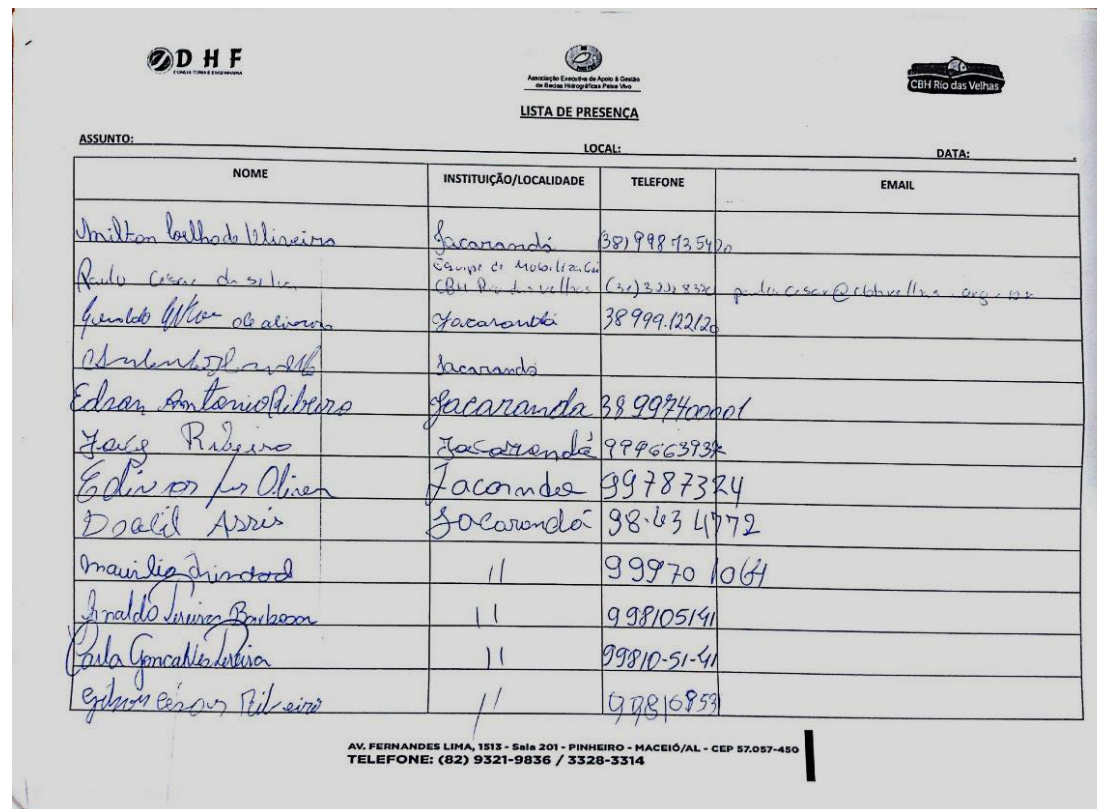 DHF
CONSULTORIA E ENGENHARIA
Associação Executiva de Apoio à Gestão
de Bacias Hidrográficas Peixe Vivo
CBH Rio das Velhas
LISTA DE PRESENÇA
ASSUNTO: LOCAL: DATA:
NOME INSTITUIÇÃO/LOCALIDADE TELEFONE EMAIL
Milton Coelho de Oliveira Jacarandá (38) 998735420
Paulo César da Silva Equipe de Mobilização CBH Rio das Velhas (31) 3222 8350 paulo.cesar@cbhvelhas.org.br
Geraldo de oliveira Jacarandá 38 999.122120
Jacarandá
Edson Antonio Ribeiro Jacaranda 38 997400001
Ribeiro Jacarandá 999663937
Oliver 99787324
Assis Jacarandá 98.43 4772
Maurilio Trindad 11 99970 1064
Arnaldo Pereira Barbosa 11 998105141
Carla Goncalves Pereira 11 99810-51-41
Gilson César Ribeiro 11 99816853
AV. FERNANDES LIMA, 1513 - Sala 201 - PINHEIRO - MACEIÓ/AL - CEP 57.057-450
TELEFONE: (82) 9321-9836 / 3328-3314